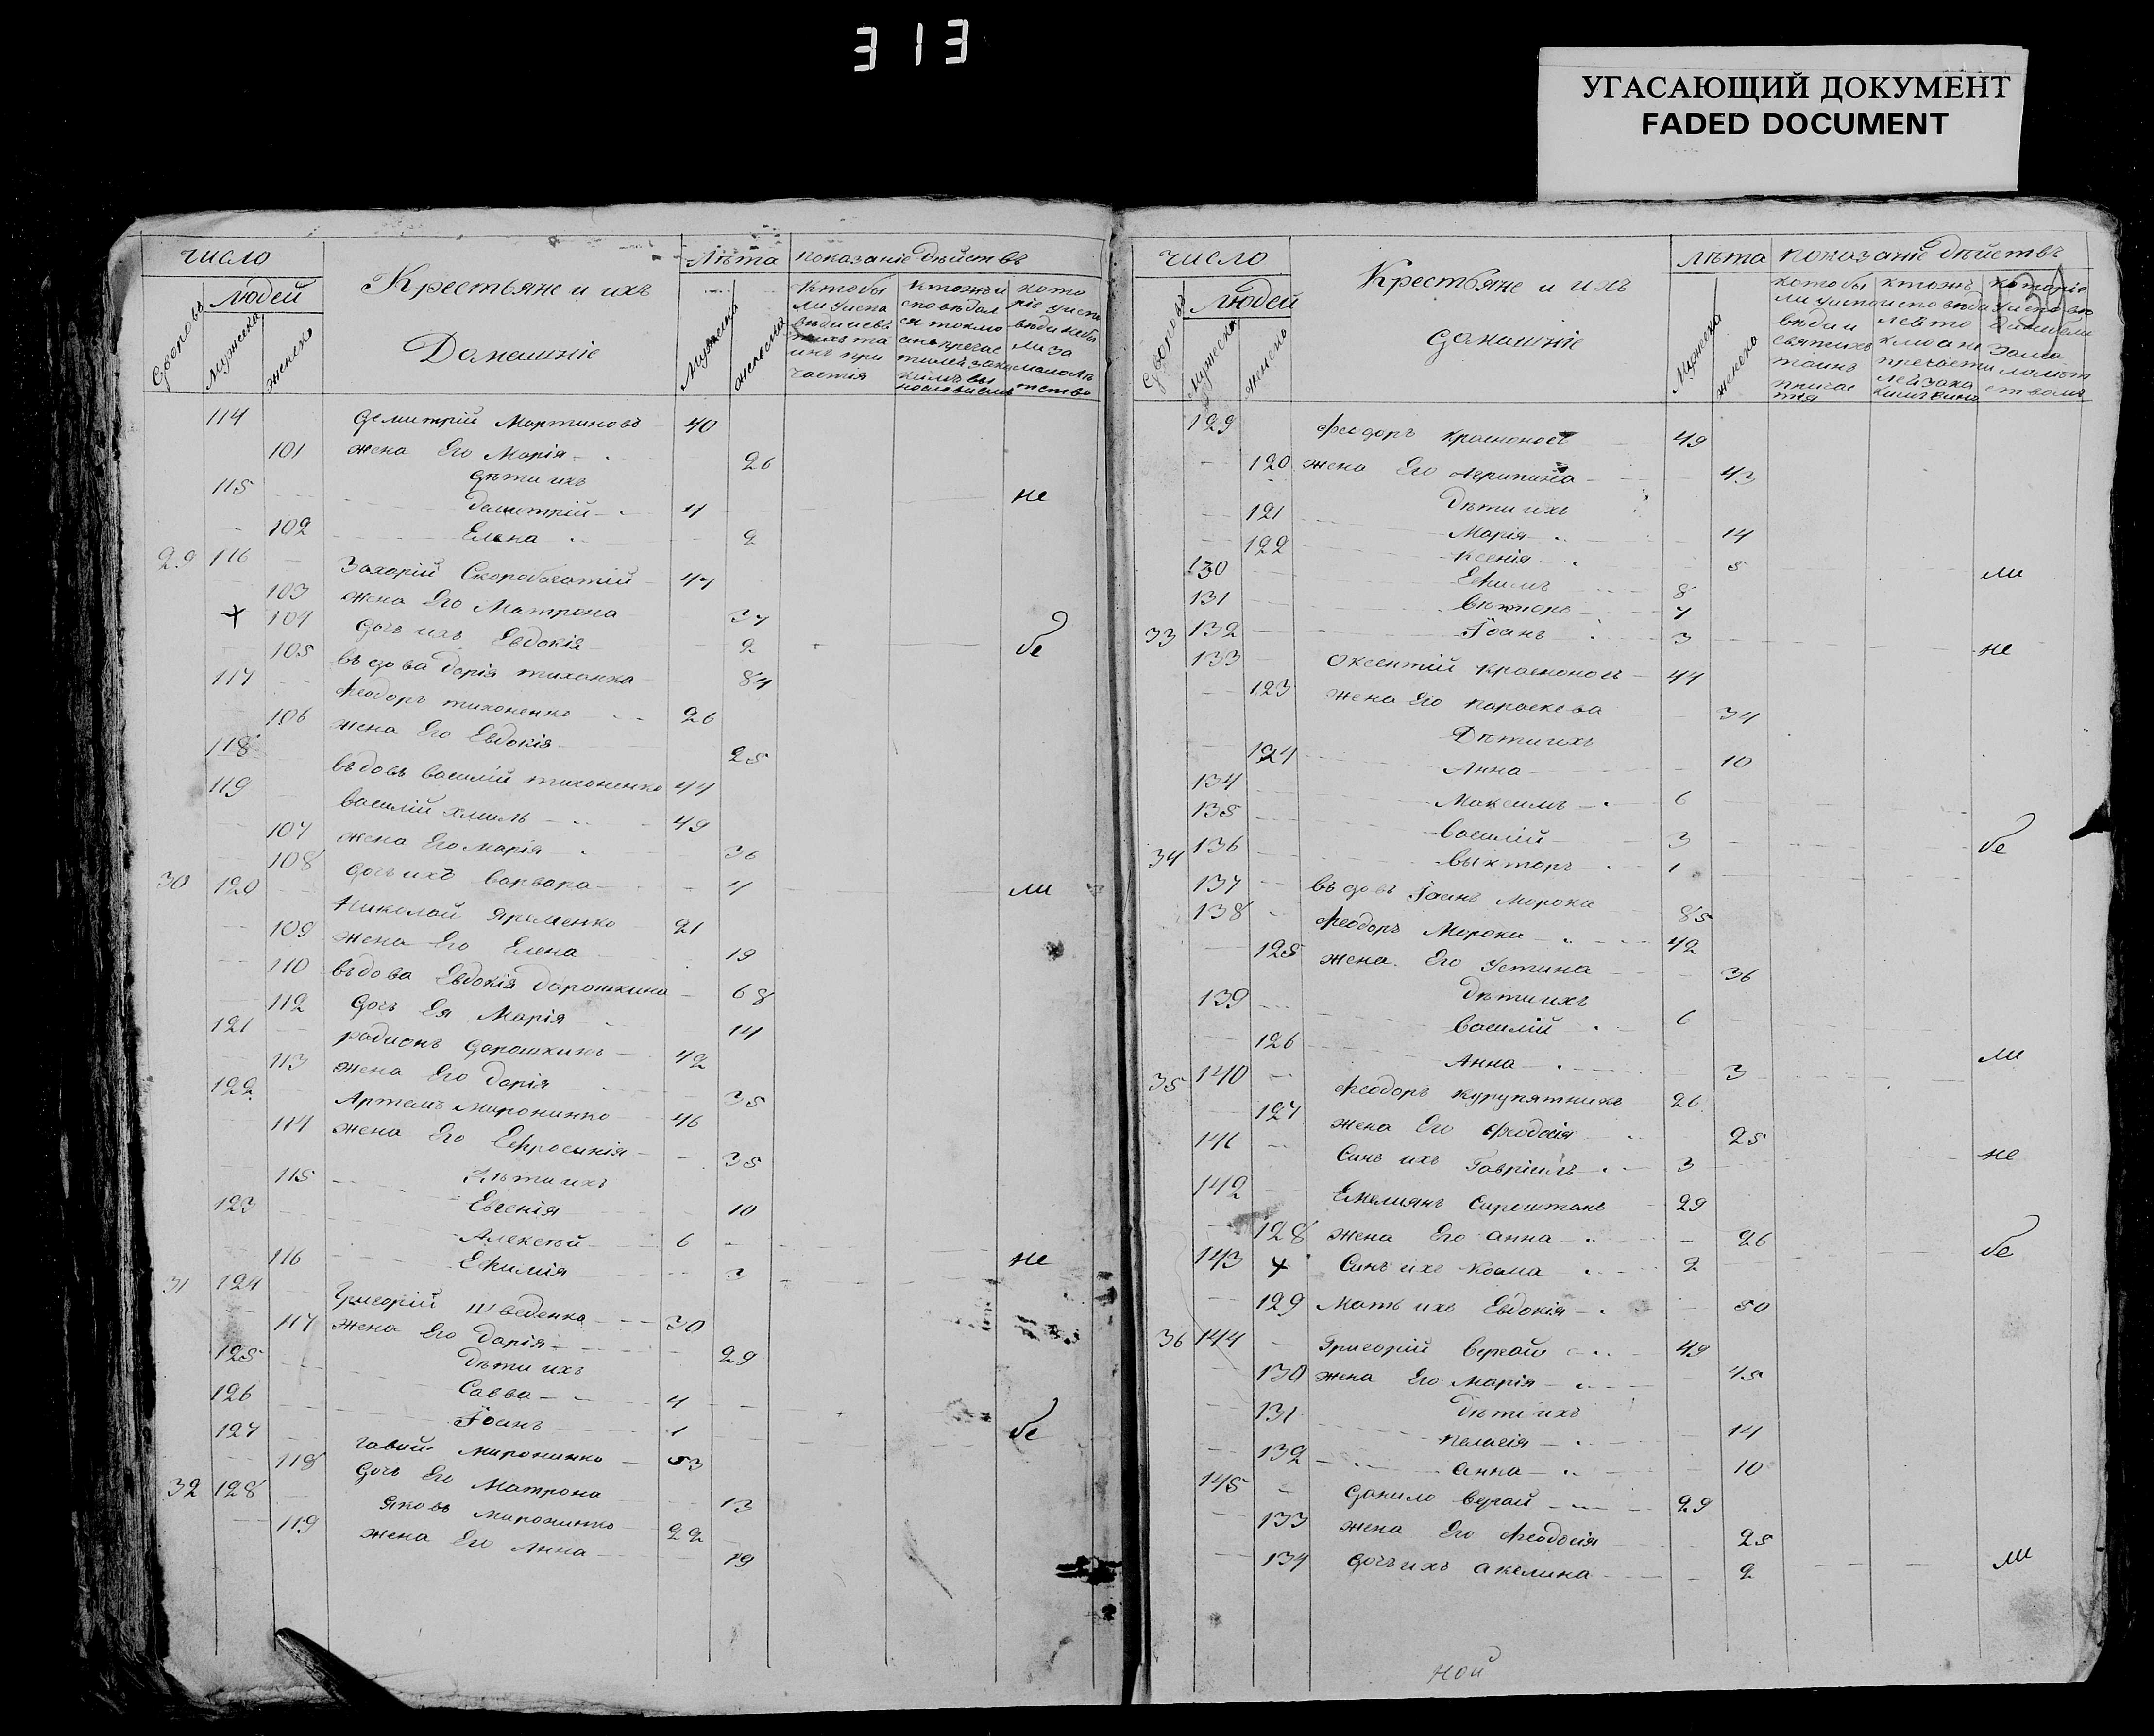 313
УГАСАЮЩИЙ ДОКУМЕНТ
FADED DOCUMENT
число
людей
дворовъ
мужеска
женско
Крестьяне и ихъ
Домашніе
лѣта
мужеска
женска
показаніе дѣйствъ
114 Демитрій Мартиновъ 40
101 жена Его Марія 26
дѣти ихъ
115 Димитрій 4 не
102 Елена 2
29 116 Захарій Скоробогатій 47
103 жена Его Матрона 37
+ 104 дочь ихъ Евдокія 2 бе
105 въдова Дарія тихонка 84
117 Феодоръ тихоненко 26
106 жена Его Евдокія 25
118 въдовъ василій тихоненко 44
119 василій хмиль 49
107 жена Его Марія 36
108 дочь ихъ варвара 4 ли
30 120 Николай Яременко 21
109 жена Его Елена 19
110 въдова Евдокія Дорошкина 68
112 дочь Ея Марія 14
121 радионъ дорошкинъ 42
113 жена Его дарія 35
122 Артемъ миронинко 46
114 жена Его Ефросинія 35
Дѣти ихъ
115 Евгенія 10
123 Алексѣй 6
116 Ефимія 3 не
31 124 Григорій Шведенко 30
117 жена Его Дарія 29
дѣти ихъ
125 Савва 4
126 Іоанъ 1 бе
127 миронинко 53
118 дочь Его Матрона 13
32 128 Яковъ миронинко 22
119 жена Его Анна 19
число
людей
дворовъ
мужеска
женска
Крестьяне и ихъ
домашніе
лѣта
мужеска
женска
показаніе дѣйствъ
129 Феодоръ красноносъ 49
120 жена Его Агрипина 43
Дѣти ихъ
121 Марія 14
122 Ксенія 5
130 Ефимъ 8 ли
131 Виктюръ 7
132 Іоанъ 3
33 133 Оксентій красноносъ 44 не
123 жена Его параскева 34
Дѣти ихъ
124 Анна 10
134 Максимъ 6
135 василій 3
136 выкторъ 1 бе
34 137 въдовъ Іоанъ Мороки 85
138 Феодоръ Мороки 42
125 жена Его Устина 36
дѣти ихъ
139 василій 6
126 Анна 3 ли
35 140 Феодоръ курупятникъ 26
127 жена Его Феодосія 25
141 Синъ ихъ Гавріилъ 3 не
142 Емелиянъ Сироштанъ 29
128 жена Его анна 26
143 + Синъ ихъ Косма 2 бе
129 Мать ихъ Евдокія 50
36 144 Григорій вергай 49
130 жена Его Марія 45
дѣти ихъ
131 пелагія 14
132 анна 10
145 данило вергай 29
133 жена Его Феодосія 25
134 дочь ихъ акелина 2 ли
ной